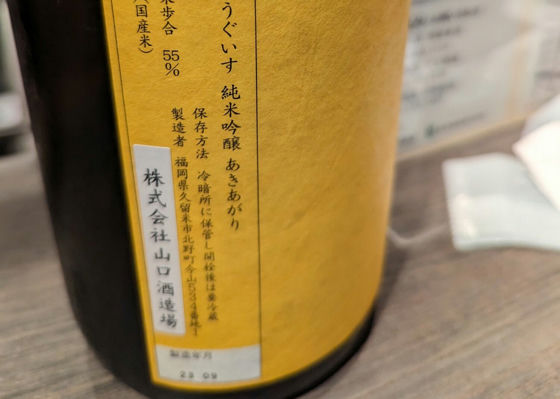 うぐいす 純米吟醸 あきあがり
保存方法 冷暗所に保管し開栓後は要冷蔵
製造者 福岡県久留米市北野町今山534番地1
株式会社山口酒造場
米歩合 55%
(国産米)
製造年月
23 09